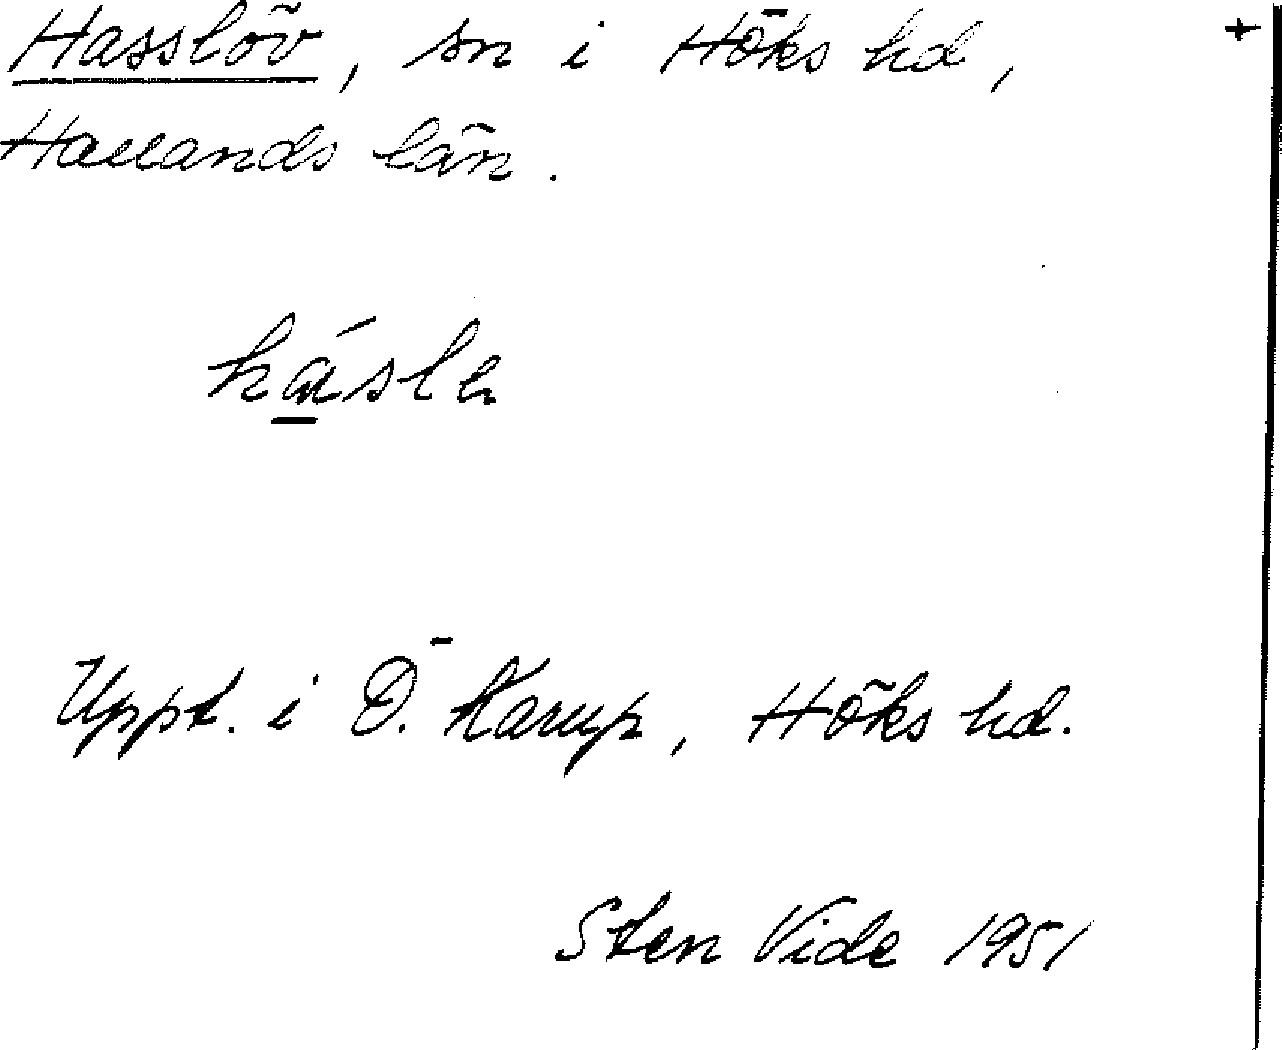 Hasslöv, sn i Höks hd, +
Hallands län.
hásle
Uppt. i Ö. Karup, Höks hd.
Sten Vide 1951